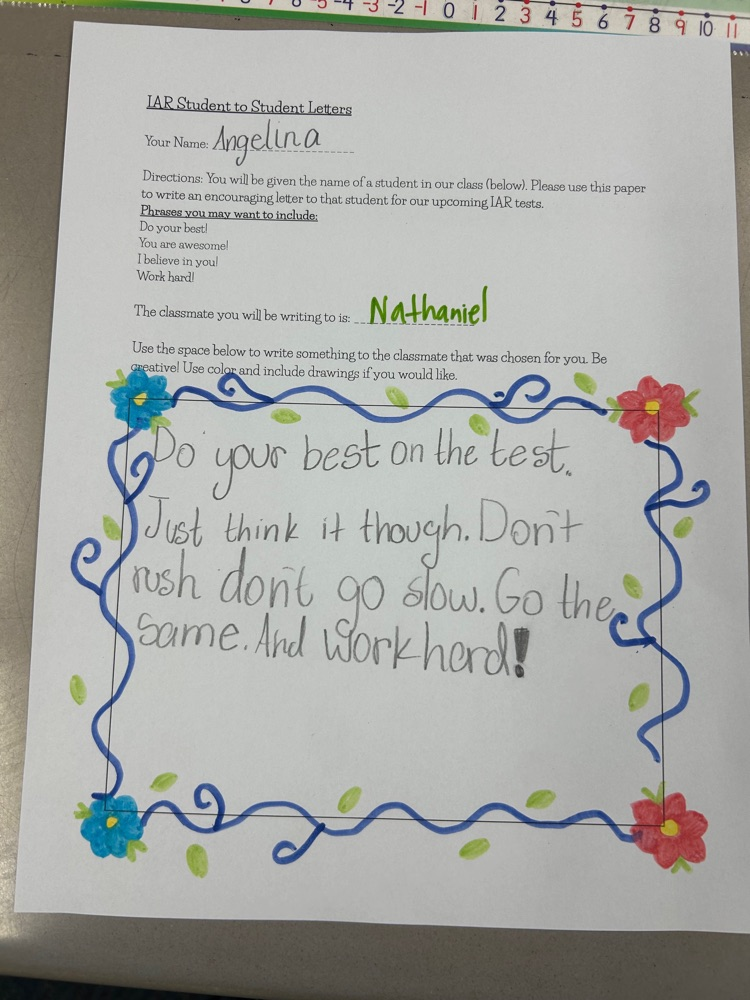 -5 -4 -3 -2 -1 0 1 2 3 4 5 6 7 8 9 10 11
IAR Student to Student Letters
Your Name: Angelina
Directions: You will be given the name of a student in our class (below). Please use this paper
to write an encouraging letter to that student for our upcoming IAR tests.
Phrases you may want to include:
Do your best!
You are awesome!
I believe in you!
Work hard!
The classmate you will be writing to is: Nathaniel
Use the space below to write something to the classmate that was chosen for you. Be
creative! Use color and include drawings if you would like.
Do your best on the test.
Just think it though. Don't
rush don't go slow. Go the
same. And Work hard!